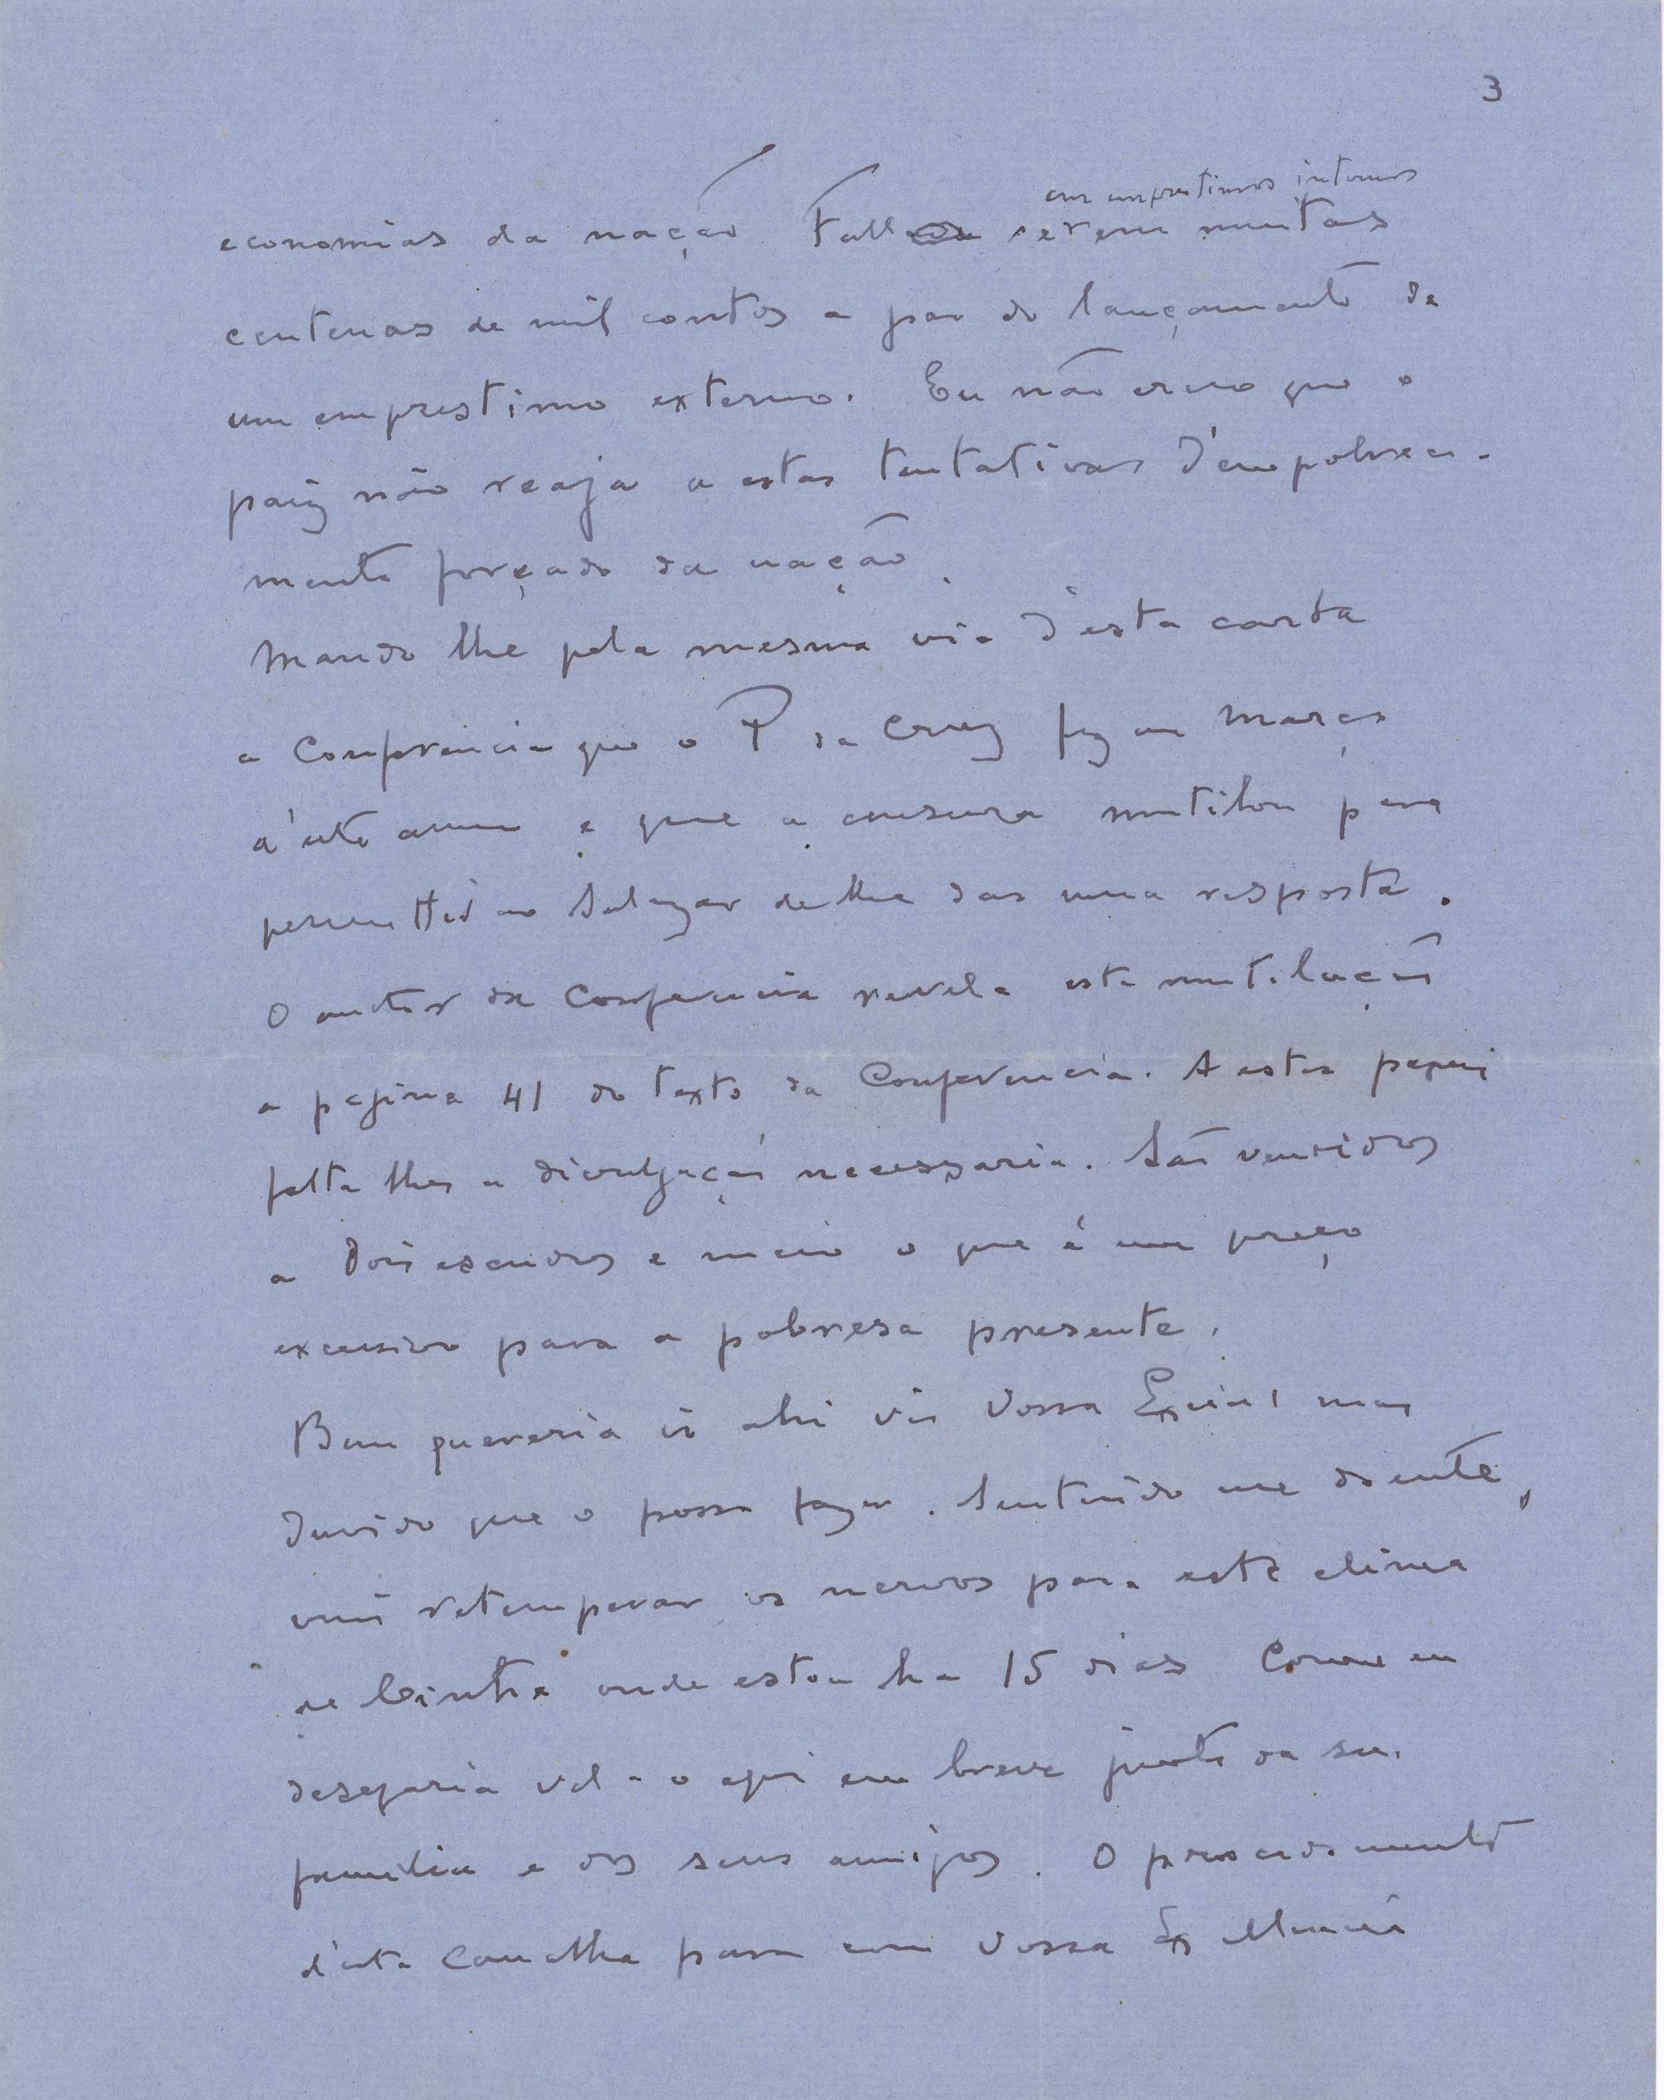 3
em emprestimos internos
economias da nação. Falla serem muitas
centenas de mil contos a par do lançamento de
um emprestimo externo. Eu não creio que o
paiz não reaja a estas tentativas d'empobreci-
mento forçado da nação.
Mando lhe pela mesma via d'esta carta
a Conferencia que o P da Cruz fez em Março
d'este anno e que a censura mutilou para
permittir ao Salazar de lhe dar uma resposta.
O auctor da Conferencia revela esta mutilação
a pagina 41 do texto da Conferencia. A estes papeis
falta lhes a divulgação necessaria. São vendidos
a dois escudos e meio o que é um preço
excessivo para a pobresa presente.
Bem quereria ir ahi vêr Vossa Excia, mas
duvido que o possa fazer. Sentindo me doente,
vim retemperar os nervos para este clima
de Cintra onde estou ha 15 dias Como eu
desejaria vel-o aqui em breve junto da sua
familia e dos seus amigos. O
d'esta canalha para com Vossa Exellencia